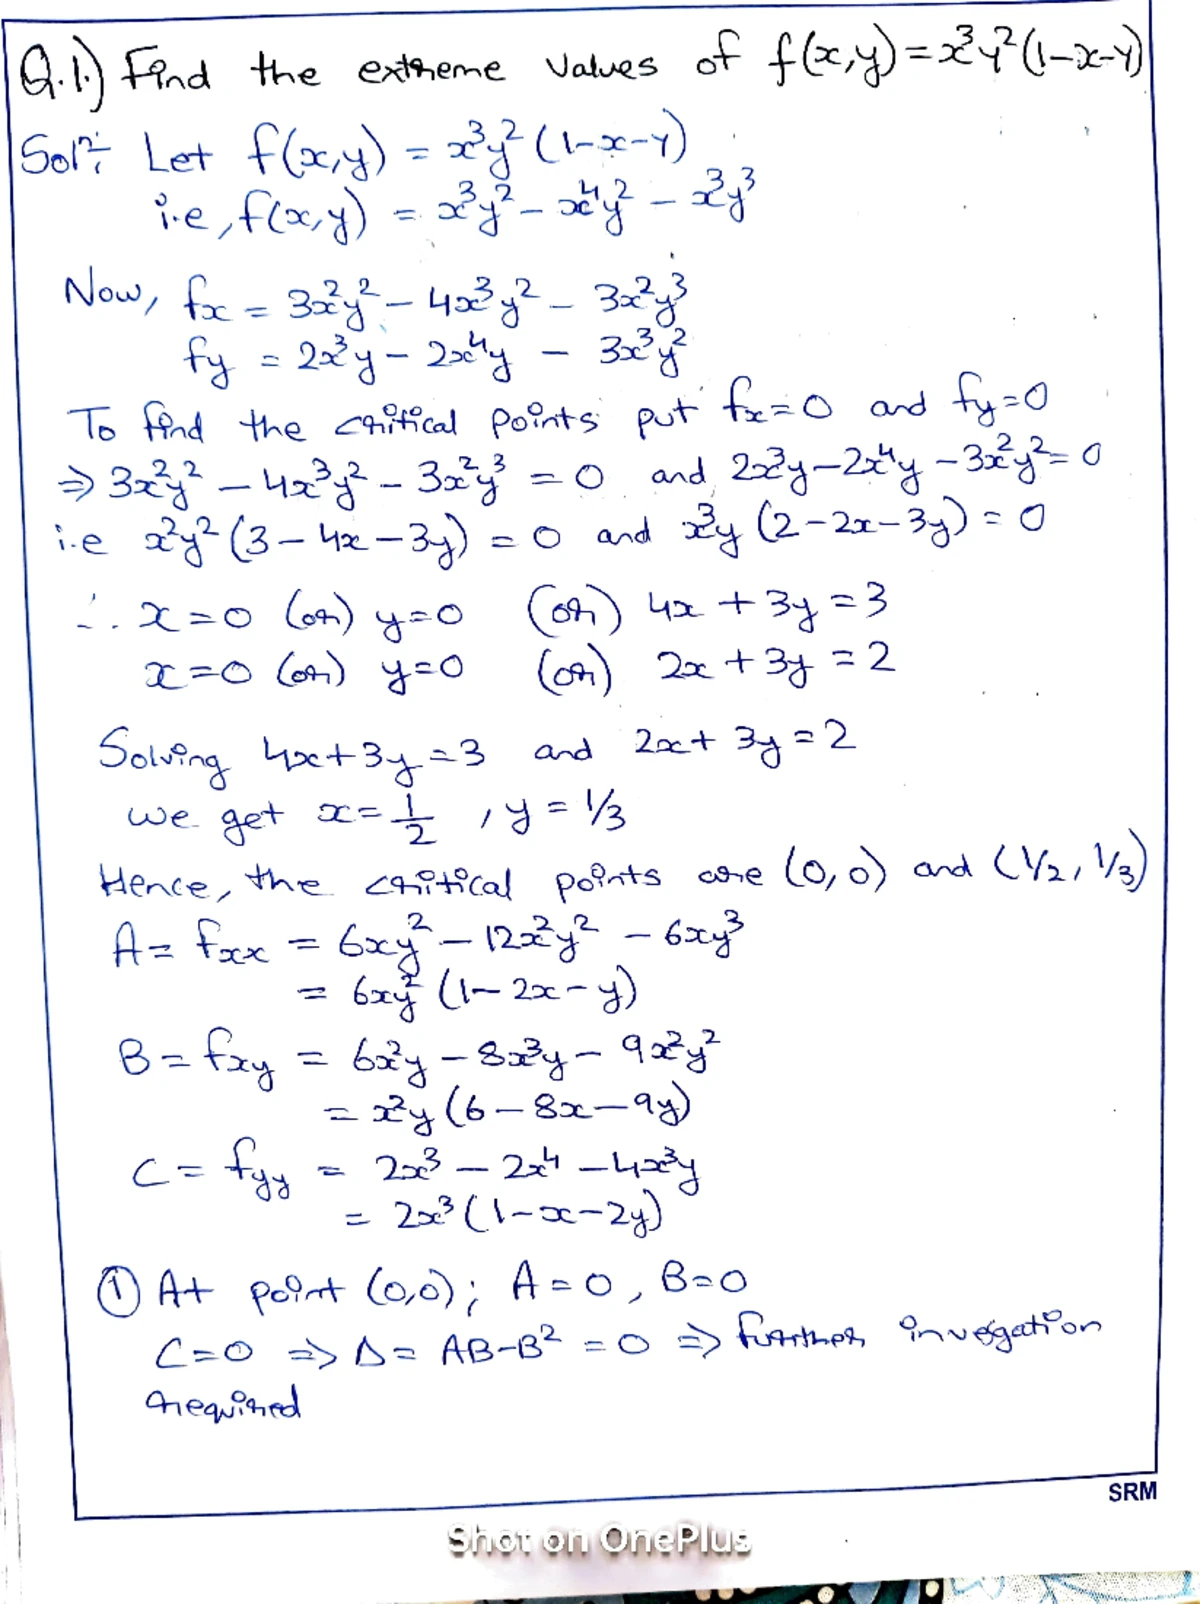 Q.1.) Find the extreme values of f(x,y) = x³y²(1-x-y)
Solⁿ: Let f(x,y) = x³y² (1-x-y)
i.e, f(x,y) = x³y² - x⁴y² - x³y³
Now, fx = 3x²y² - 4x³y² - 3x²y³
fy = 2x³y - 2x⁴y - 3x³y²
To find the critical points put fx=0 and fy=0
⇒ 3x²y² - 4x³y² - 3x²y³ = 0 and 2x³y - 2x⁴y - 3x²y² = 0
i.e x²y² (3 - 4x - 3y) = 0 and x³y (2 - 2x - 3y) = 0
∴ x=0 (or) y=0 (or) 4x + 3y = 3
x=0 (or) y=0 (or) 2x + 3y = 2
Solving 4x+3y=3 and 2x+3y=2
we get x=1/2 , y = 1/3
Hence, the critical points are (0,0) and (1/2, 1/3)
A = fxx = 6xy² - 12x²y² - 6xy³
= 6xy² (1 - 2x - y)
B = fxy = 6x²y - 8x³y - 9x²y²
= x²y (6 - 8x - 9y)
C = fyy = 2x³ - 2x⁴ - 4x³y
= 2x³ (1 - x - 2y)
① At point (0,0); A = 0, B=0
C=0 ⇒ Δ = AB-B² = 0 ⇒ further invegation
required
SRM
Shot on OnePlus